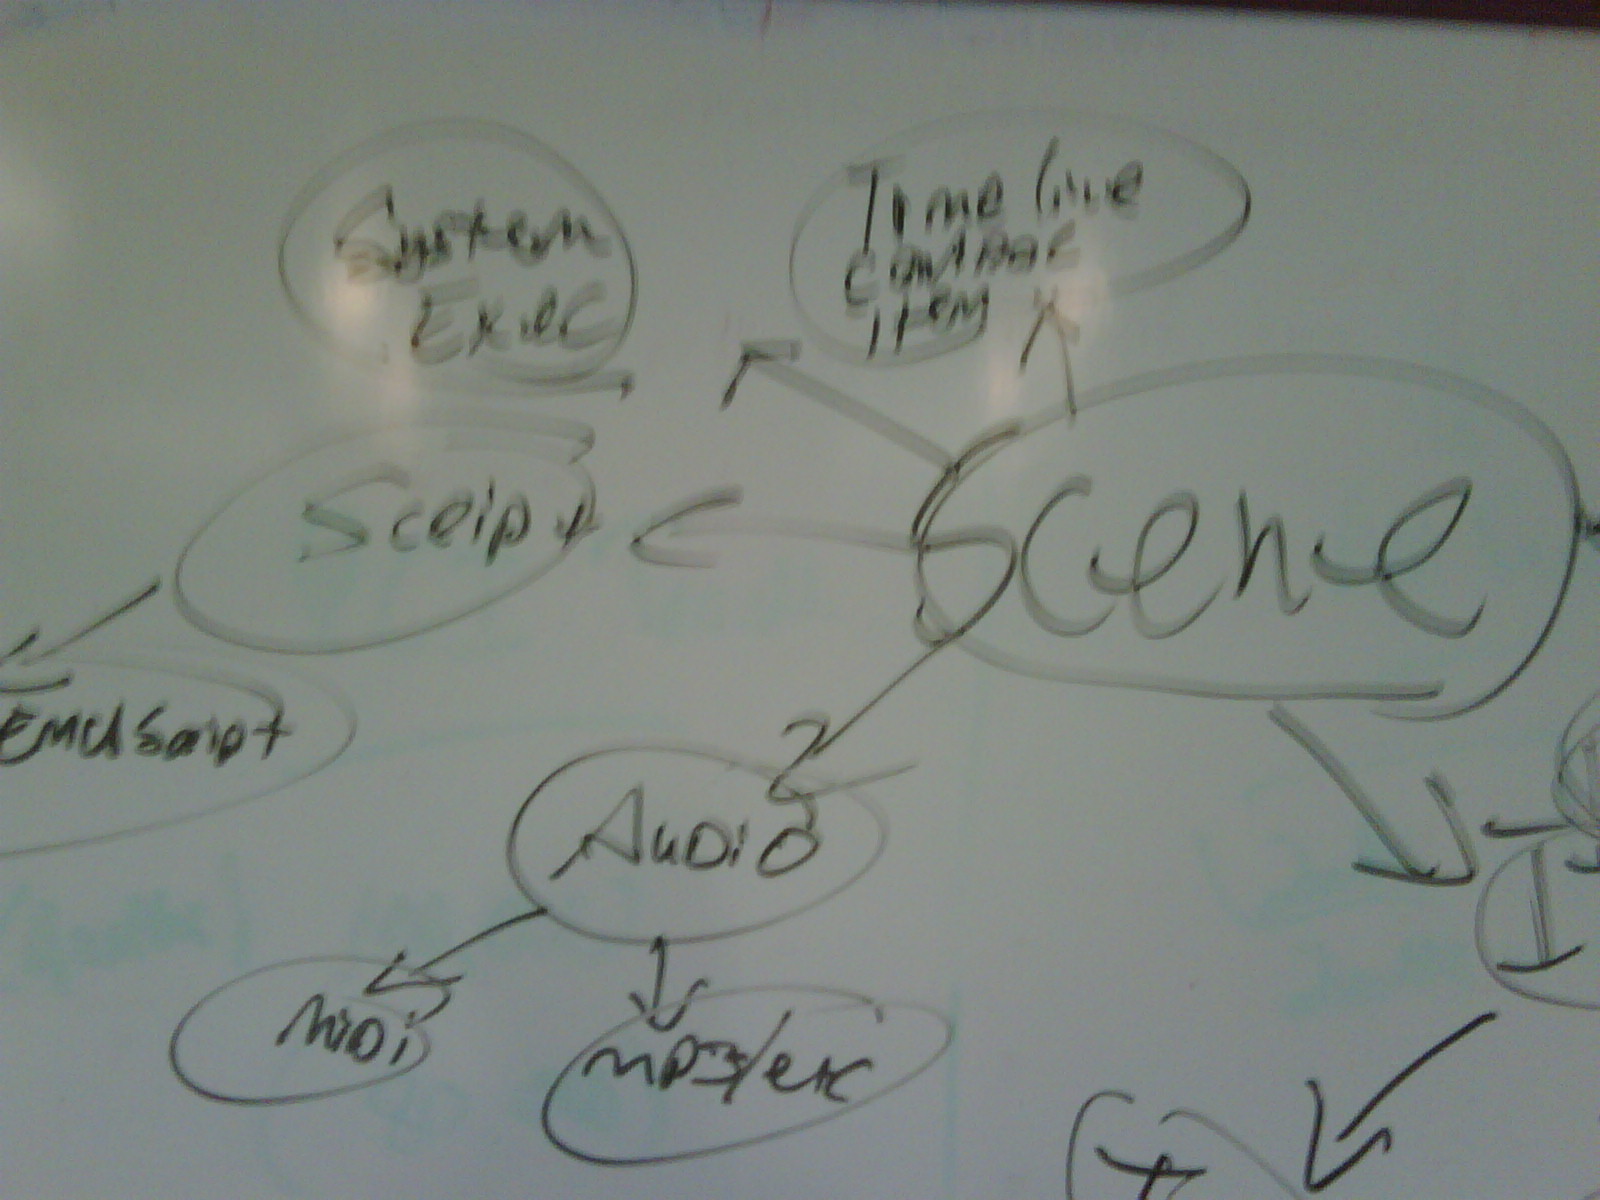 System
Exec
Time line
control
item
Scene
Script
EMCAScript
Audio
Midi
MP3/etc